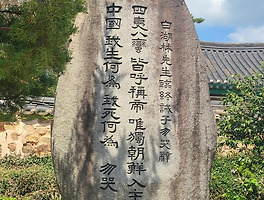 白湖林先生臨終誡子勿哭辭
四夷八蠻皆呼稱帝唯獨朝鮮入主
中國我生何為我死何為勿哭